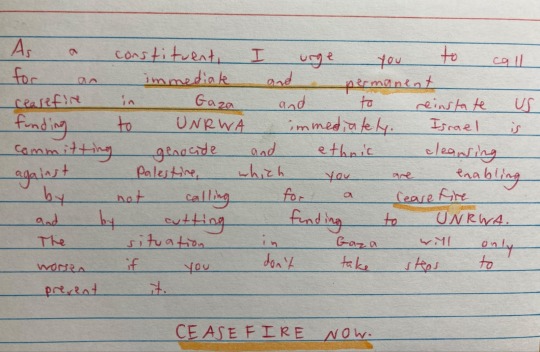 As a constituent, I urge you to call
for an immediate and permanent
ceasefire in Gaza and to reinstate US
funding to UNRWA immediately. Israel is
committing genocide and ethnic cleansing
against Palestine, which you are enabling
by not calling for a ceasefire
and by cutting funding to UNRWA.
The situation in Gaza will only
worsen if you don't take steps to
prevent it.
CEASEFIRE NOW.